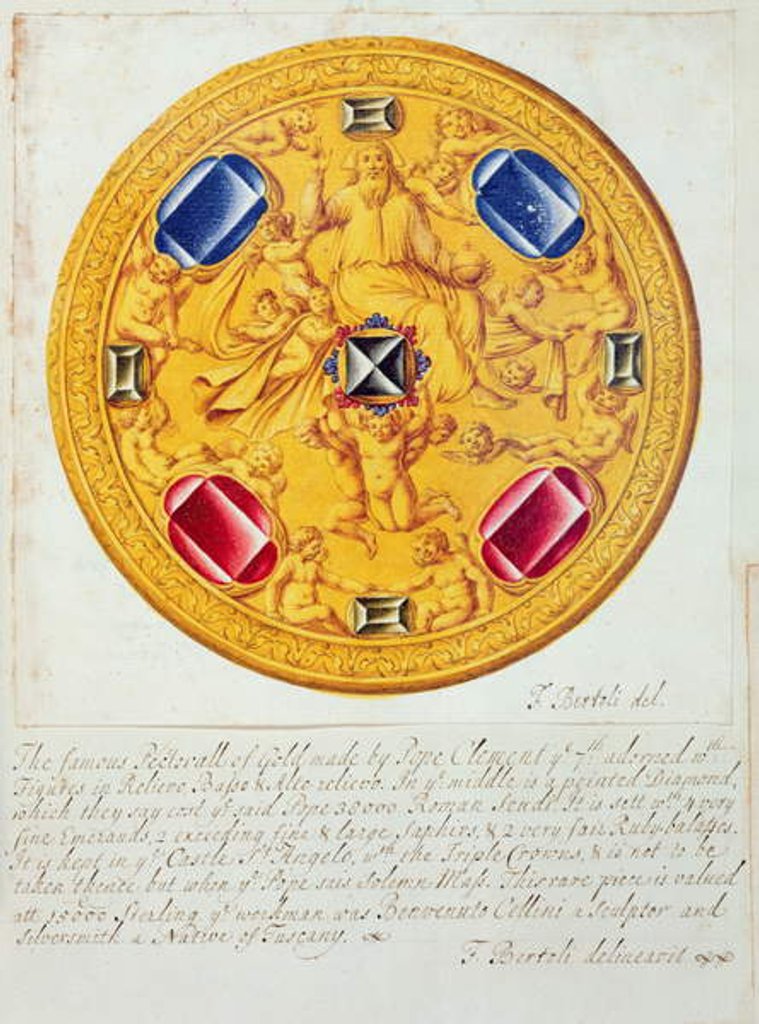 F. Bertoli del.
The famous Pectorall of Gold made by Pope Clement yᵉ 7.th adorned wth
Figures in Relievo Basso & Alto relievo. In yᵉ middle is y pointed Diamond,
which they say cost yᵉ said Pope 30000 Roman Scudi. It is sett wth 4 very
fine Emerauds, 2 exceeding fine & large Saphirs, & 2 very fair Ruby balasses.
It is kept in yᵉ Castle St. Angelo, wth the Triple Crowns, & is not to be
taken thence but when yᵉ Pope sais Solemn Mass. This rare piece is valued
att 15000 Sterling yᵉ workman was Benvenuto Cellini a Sculptor and
Silversmith a Native of Tuscany.
F. Bertoli delineavit